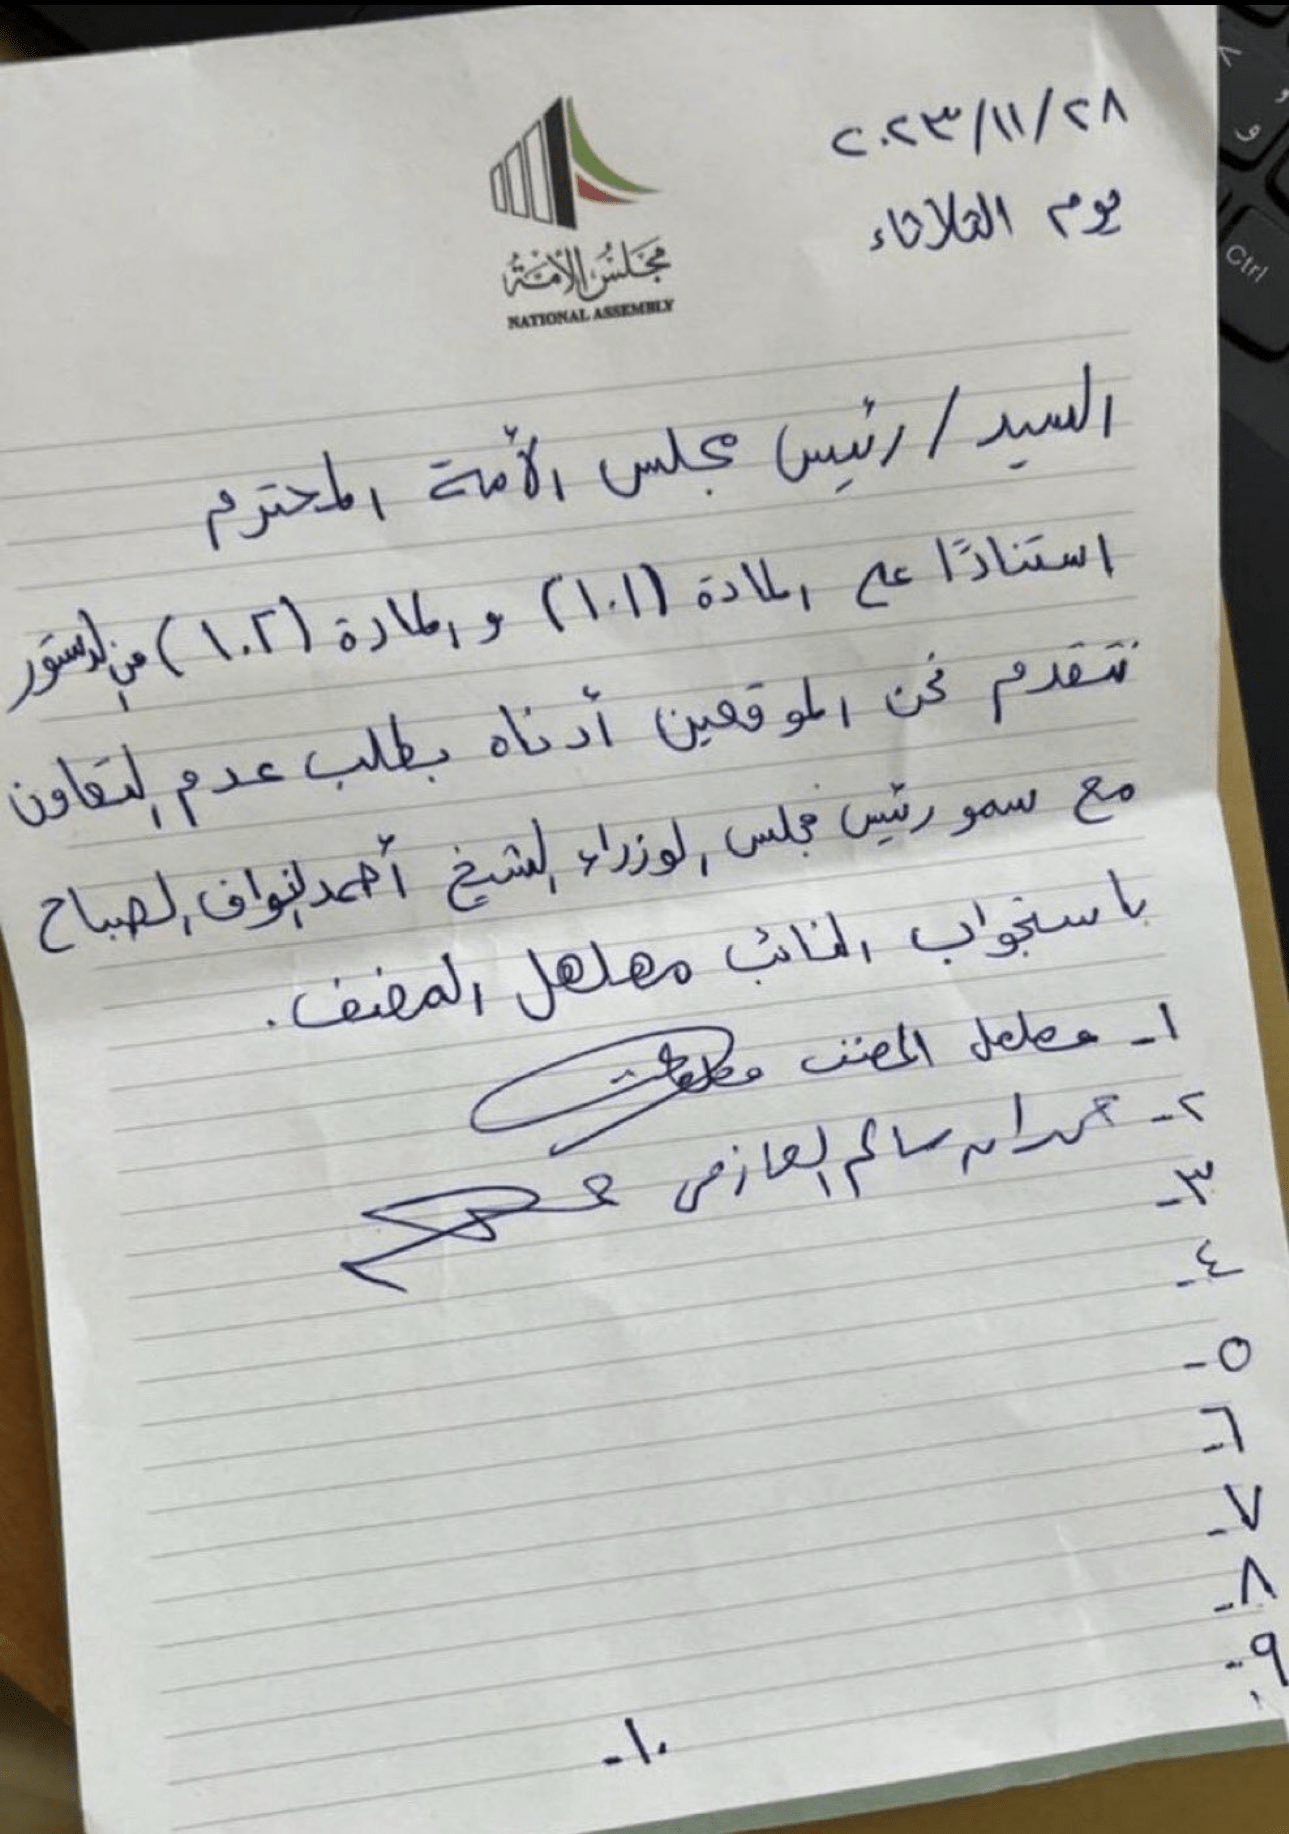 ٢٠٢٣/١١/٢٨
يوم الثلاثاء
مجلس الأمة
NATIONAL ASSEMBLY
السيد / رئيس مجلس الأمة المحترم
استنادًا على المادة (١٠١) و المادة (١٠٢) من الدستور
نتقدم نحن الموقعين أدناه بطلب عدم التعاون
مع سمو رئيس مجلس الوزراء الشيخ أحمد النواف الصباح
باستجواب النائب مهلهل المضف.
١- مهلهل المضف
٢- حمدان سالم العازمي
٣-
٤-
٥-
٦-
٧-
٨-
٩-
١٠-
Ctrl
و